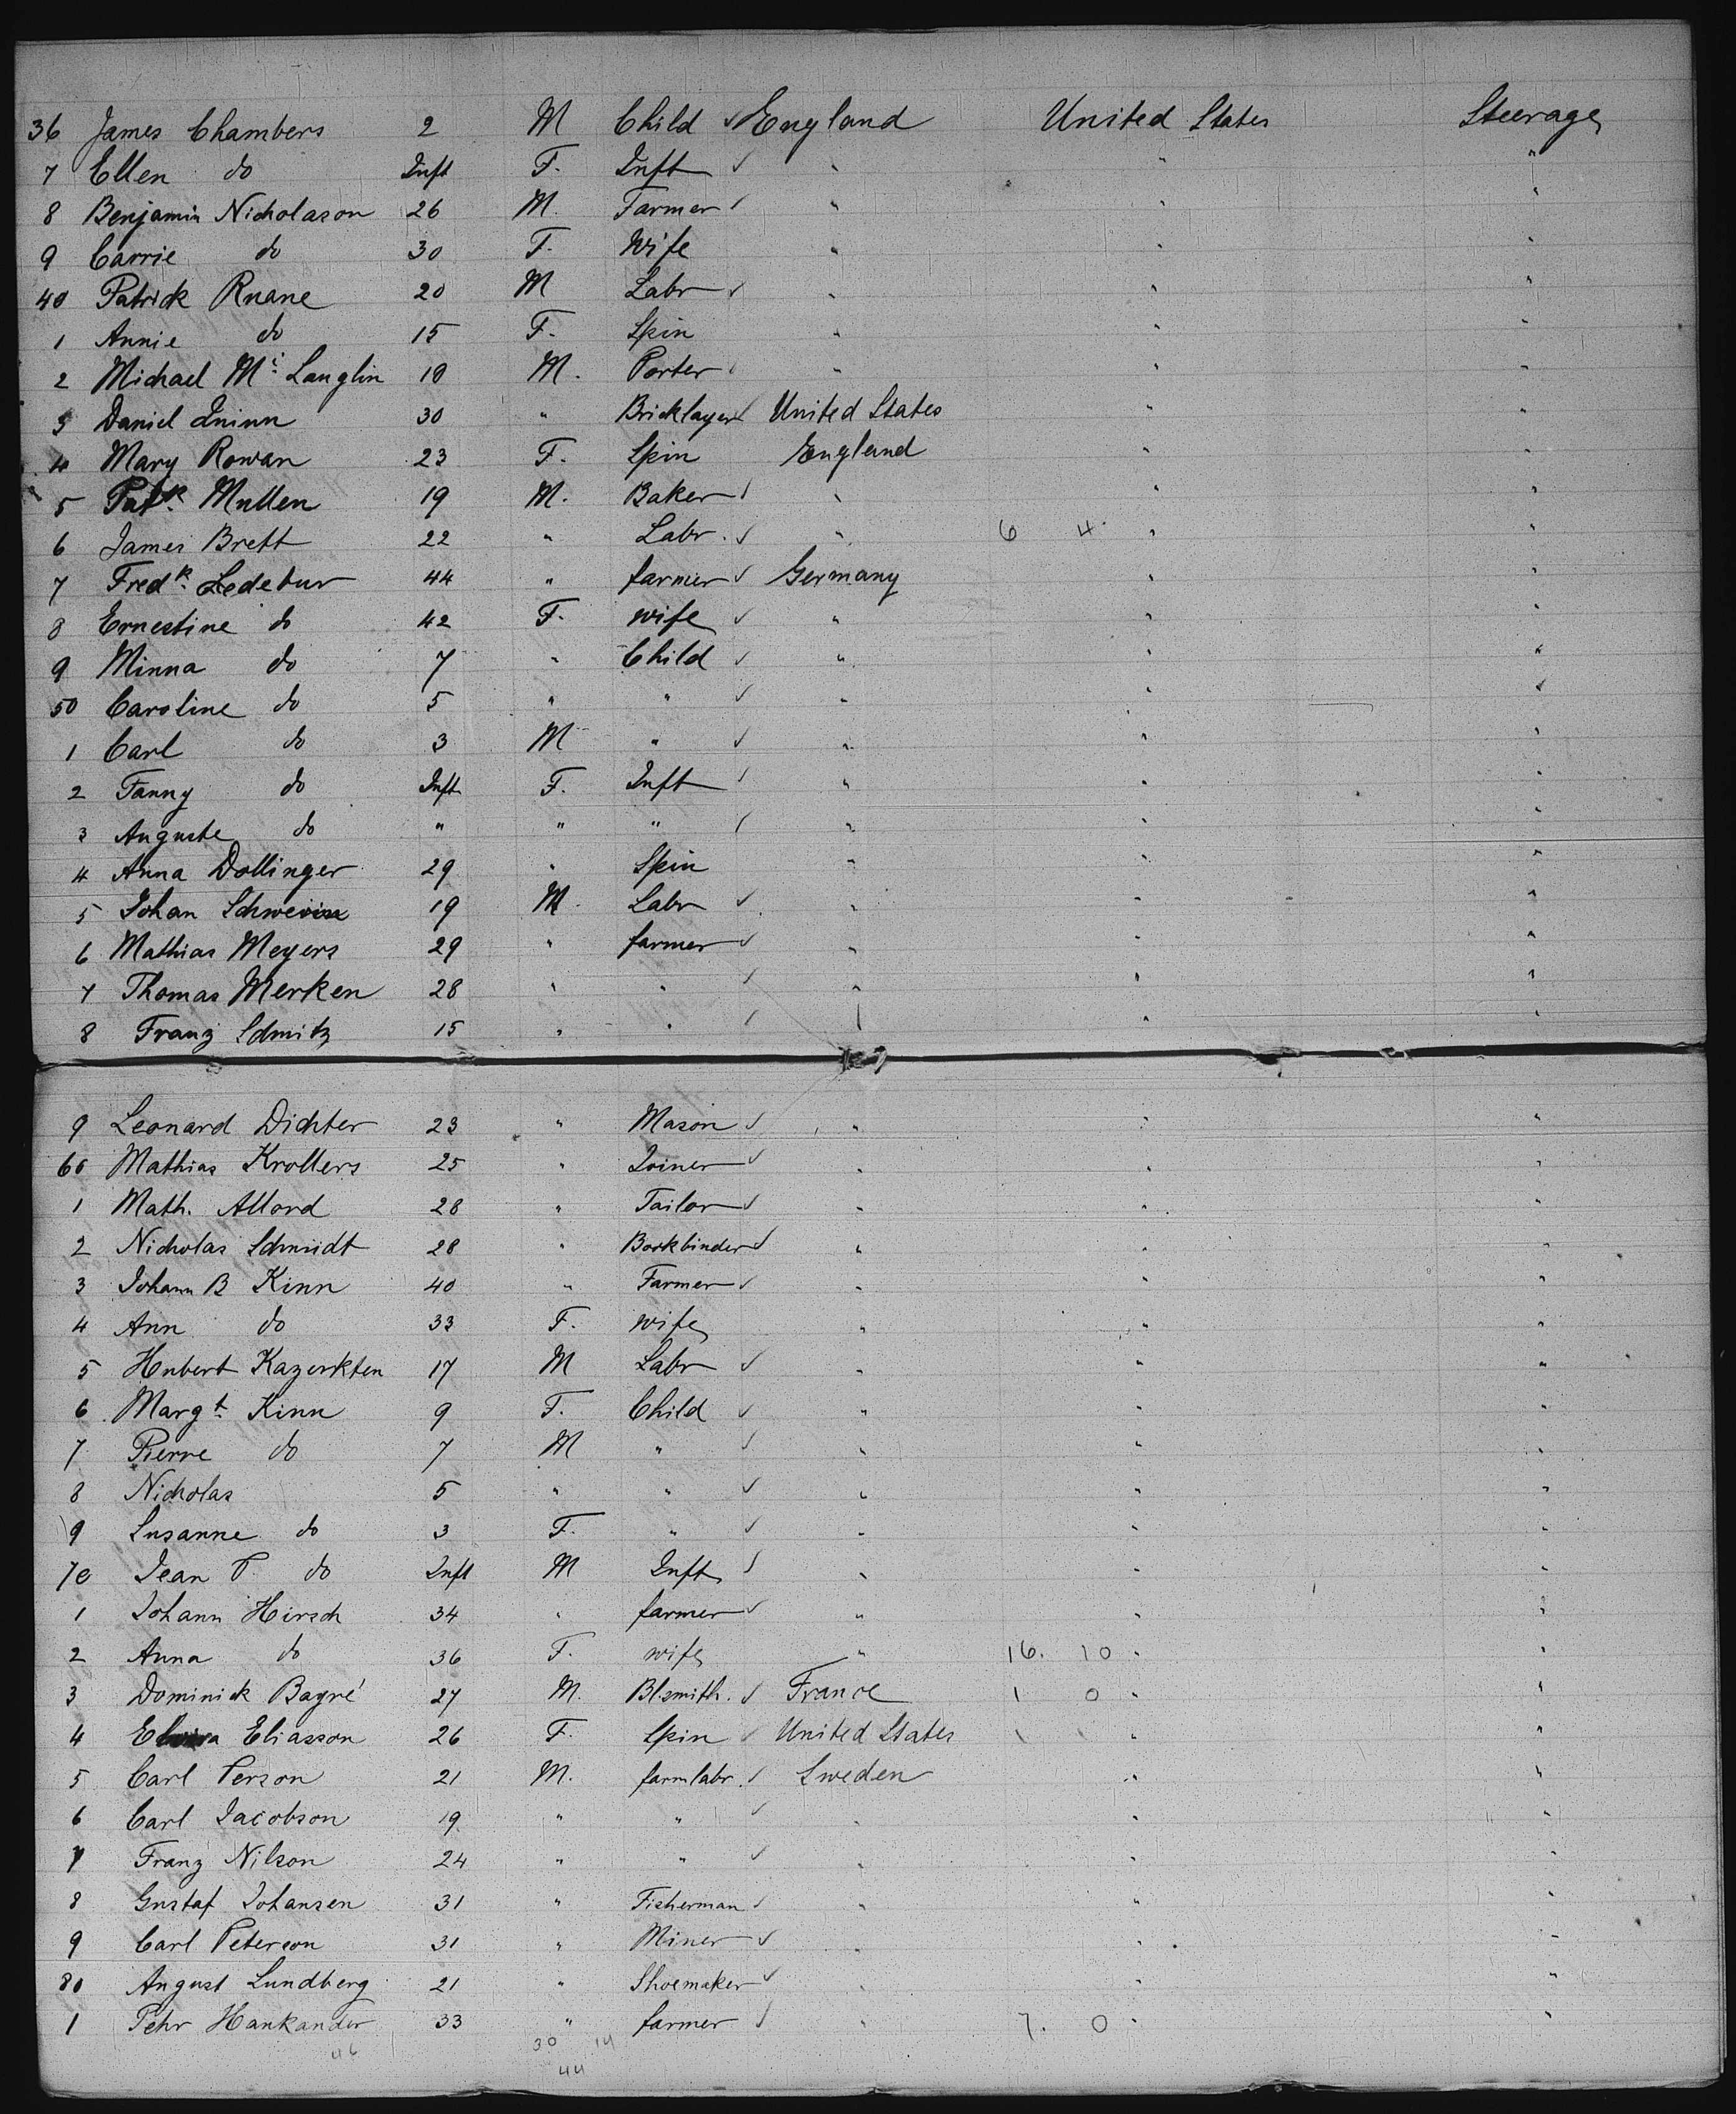 36 James Chambers 2 M Child ✓ England United States Steerage
7 Ellen do Inft F. Inft ✓ " " "
8 Benjamin Nicholason 26 M. Farmer ✓ " " "
9 Carrie do 30 F. Wife " " "
40 Patrick Ruane 20 M Labr ✓ " " "
1 Annie do 15 F. Spin " " "
2 Michael Mc Lauglin 18 M. Porter " " "
3 Daniel Quinn 30 " Bricklayer ✓ United States " "
4 Mary Rowan 23 F. Spin England " "
5 Patk. Mullen 19 M. Baker ✓ " " "
6 James Brett 22 " Labr. ✓ " 6 4 " "
7 Fredk. Ledebur 44 " farmer ✓ Germany " "
8 Ernestine do 42 F. wife ✓ " " "
9 Minna do 7 " Child ✓ " " "
50 Caroline do 5 " " ✓ " " "
1 Carl do 3 M " ✓ " " "
2 Fanny do Inft F. Inft ✓ " " "
3 Auguste do " " " ✓ " " "
4 Anna Dollinger 29 " Spin " " "
5 Johan 19 M. Labr ✓ " " "
6 Mathias Meyers 29 " farmer ✓ " " "
7 Thomas Merken 28 " " ✓ " " "
8 Franz Schmitz 15 " " ✓ " " "
9 Leonard Dichter 23 " Mason ✓ " " "
60 Mathias Krollers 25 " Joiner ✓ " " "
1 Math. Allord 28 " Tailor ✓ " " "
2 Nicholas Schmidt 28 " Bookbinder ✓ " " "
3 Johann B Kinn 40 " Farmer ✓ " " "
4 Ann do 33 F. wife " " "
5 Hubert 17 M Labr ✓ " " "
6 Margt. Kinn 9 F. Child ✓ " " "
7 Pierre do 7 M " ✓ " " "
8 Nicholas 5 " " ✓ " " "
9 Susanne do 3 F. " ✓ " " "
70 Jean P. do Inft M Inft ✓ " " "
1 Johann Hirsch 34 " farmer ✓ " " "
2 Anna do 36 F. wife " 16. 10 " "
3 Dominick Bagré 27 M. Blsmith. ✓ France 1 0 " "
4 Eliasson 26 F. Spin ✓ United States 1 1 " "
5 Carl Person 21 M. farmlabr. ✓ Sweden " "
6 Carl Jacobson 19 " " ✓ " " "
7 Franz Nilson 24 " " ✓ " " "
8 Gustaf Johansen 31 " Fisherman ✓ " " "
9 Carl Peterson 31 " Miner ✓ " " "
80 August Lundberg 21 " Shoemaker ✓ " " "
1 Pehr Hankander 33 " farmer ✓ " 7. 0 " "
46 30 14
44